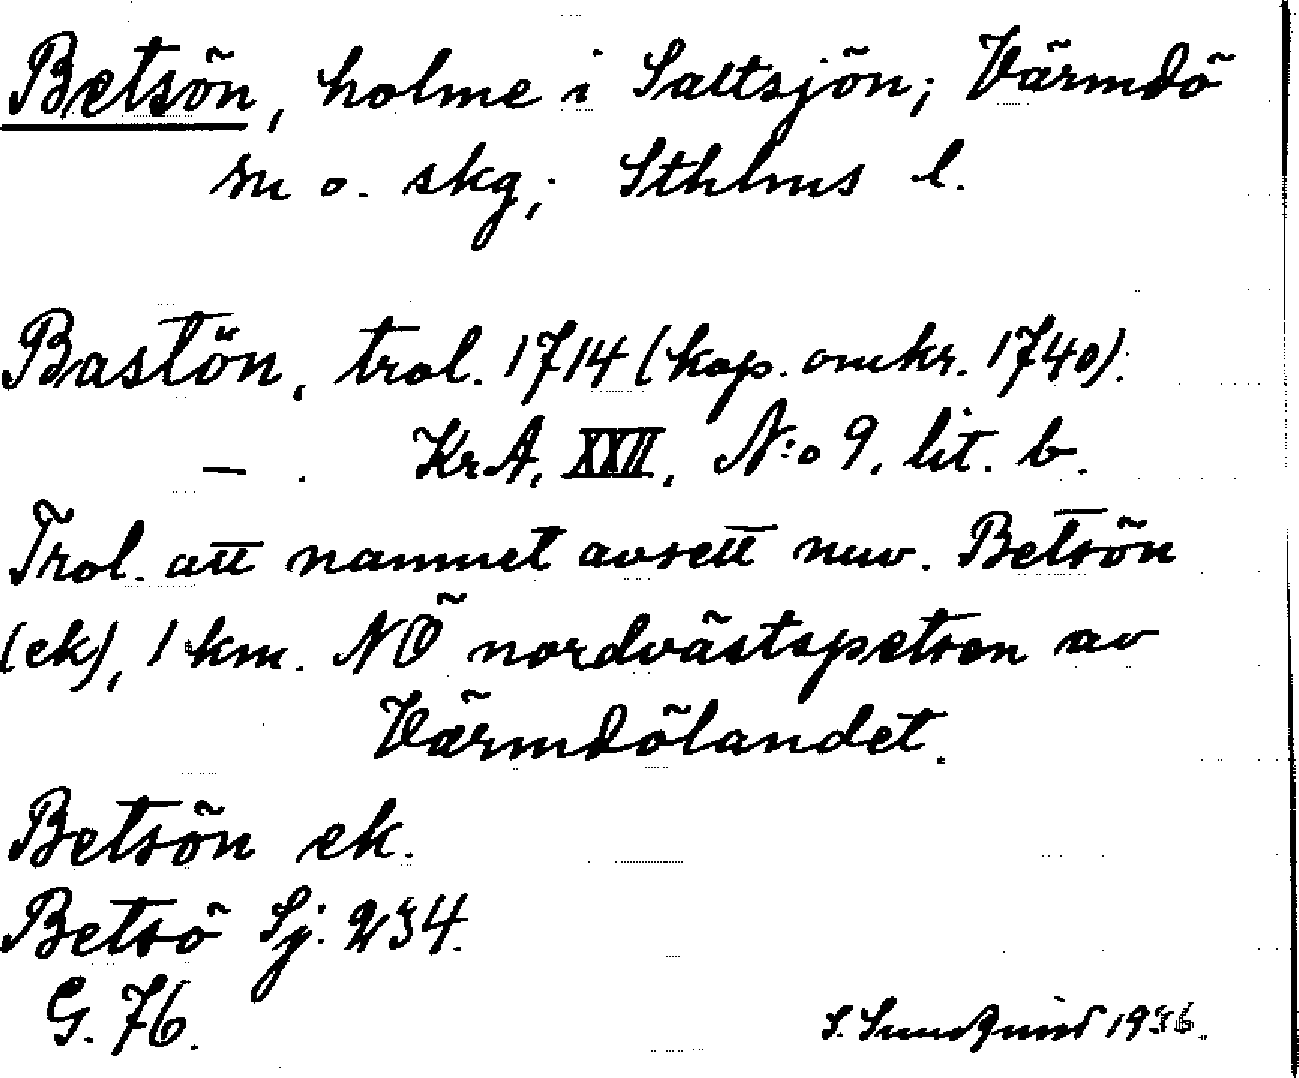 Betsön, holme i Saltsjön; Värmdö
sn o. skg; Sthlms l.
Bastön, trol. 1714 (kop. omkr. 1740).
— . KrA, XXII, N:o 9, lit. b.
Trol. att namnet avsett nuv. Betsön
(ek), 1 km. NÖ nordvästspetsen av
Värmdölandet.
Betsön ek.
Betsö Sj. 234.
G. 76.
S. Sundqvist 1936.